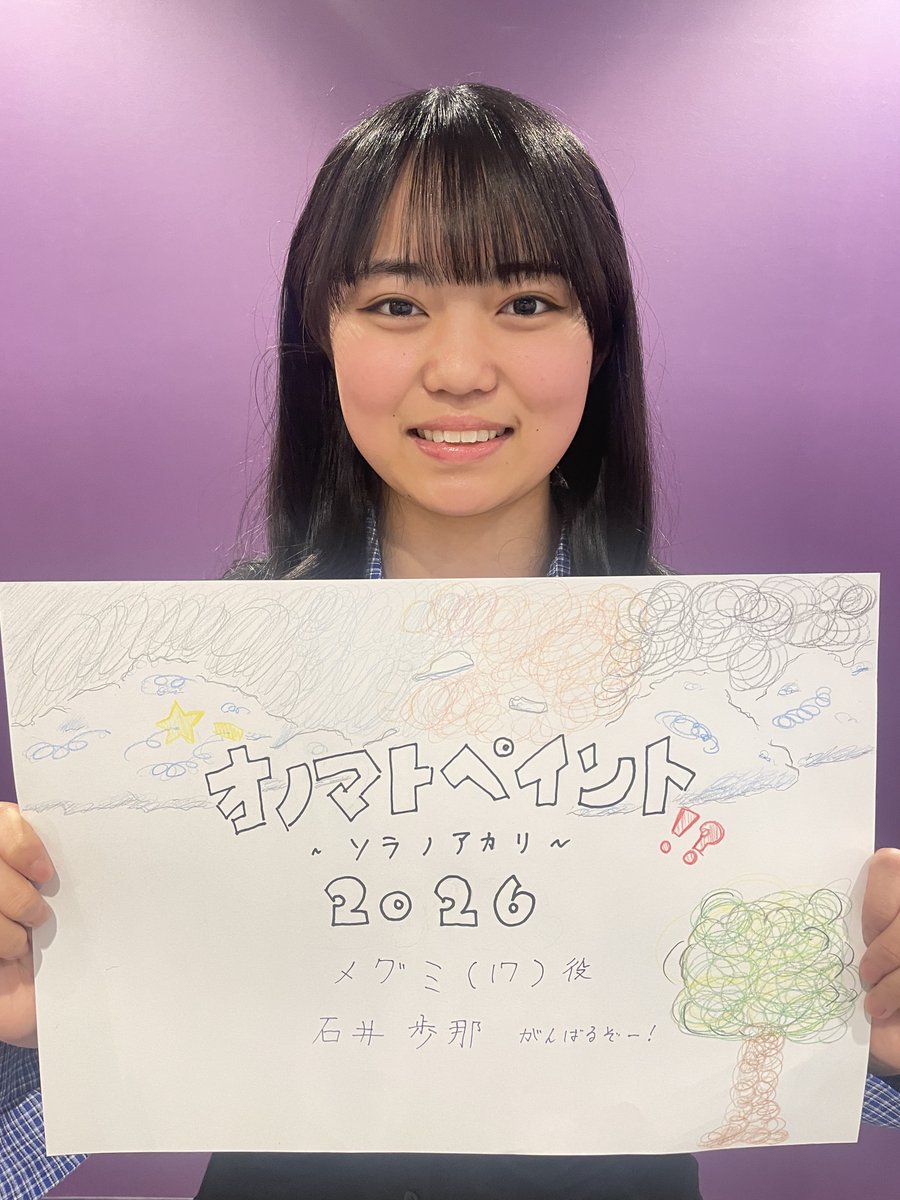 オノマトペイント!!?
~ソラノアカリ~
2026
メグミ(17)役
石井 歩那 がんばるぞー!